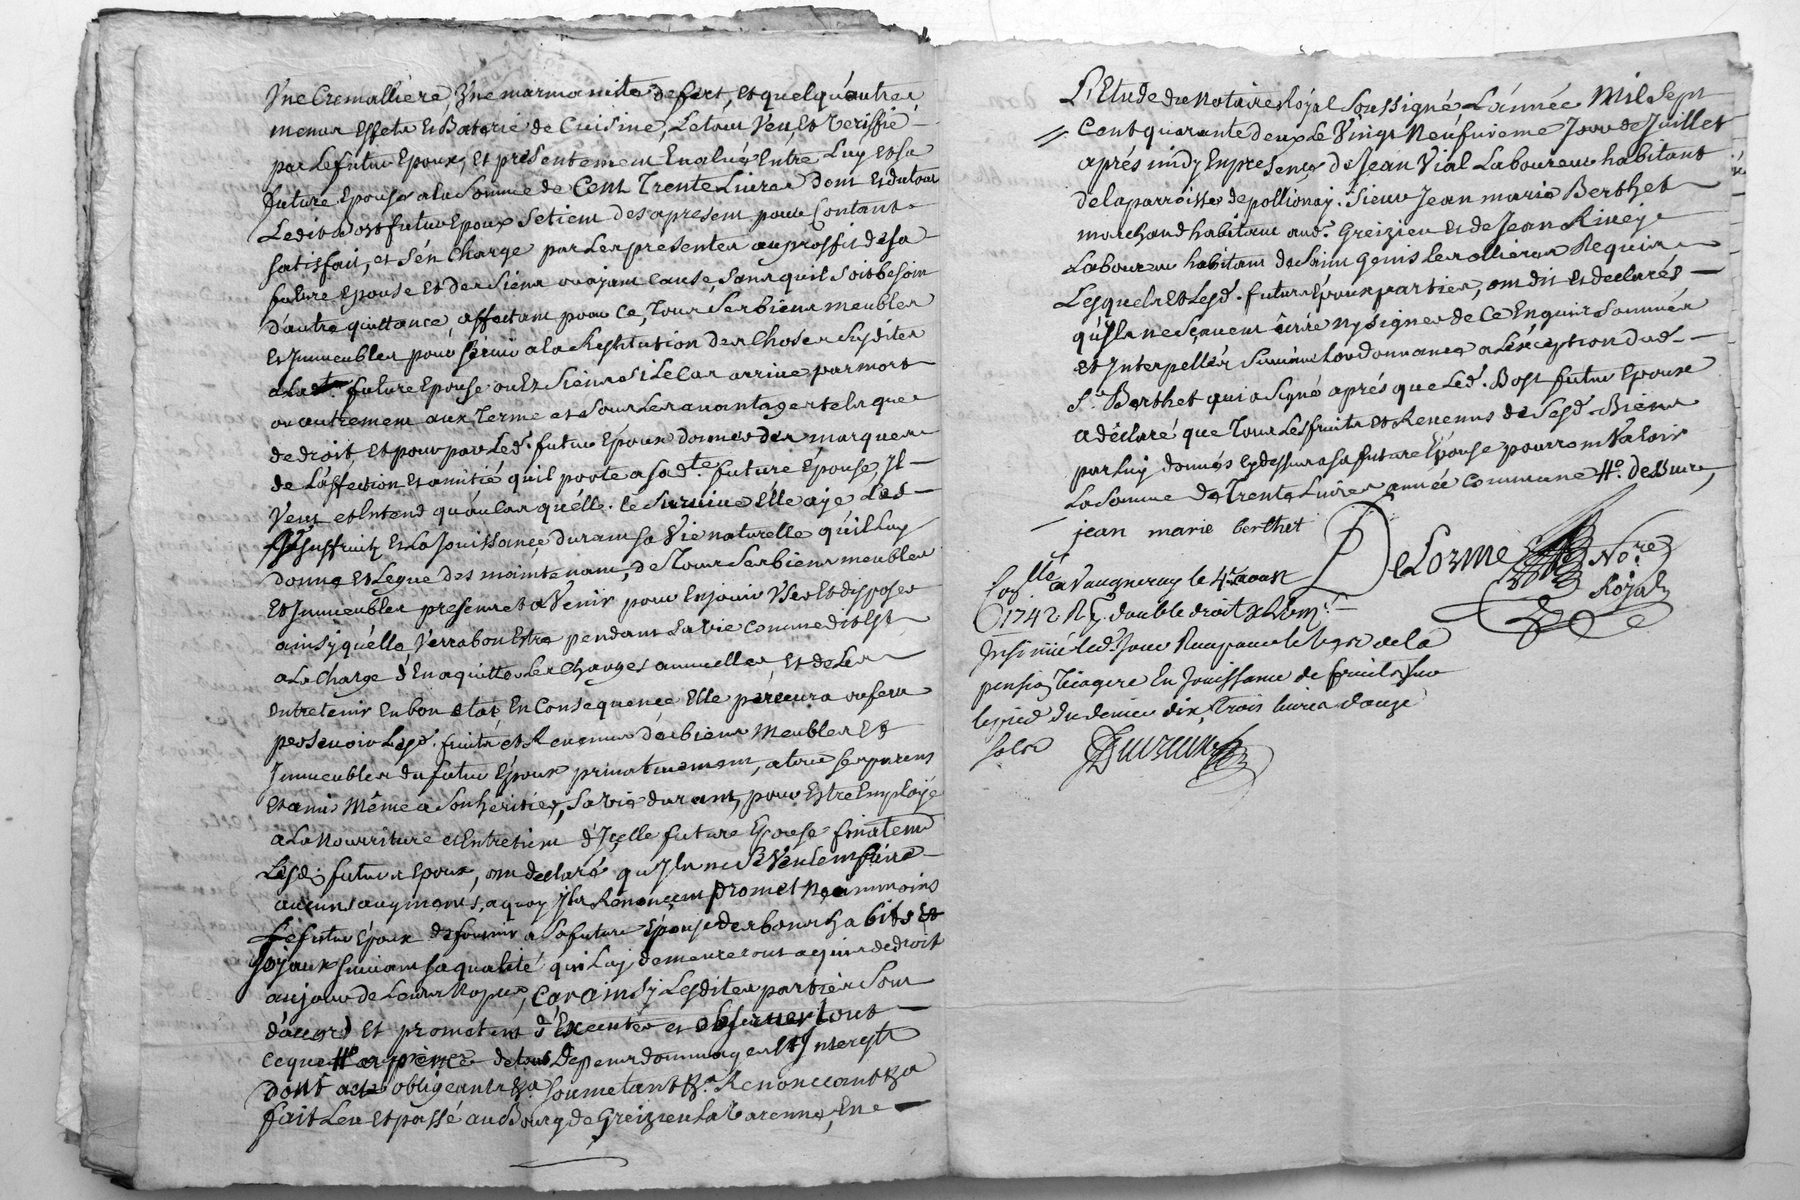 Une Cremalliere, Une marmonite de fert, et quelqu'autres
menus Effets Et Baterie de Cuisine, Le tout Veu Et Veriffié
par Le futur Epoux, Et présentement Evalué Entre Luy et sa
future Epouse a la Somme de Cent Trente Livres Dont Et du tout
Ledit Bost futur Epoux se tient des apresent pour Contant
satisfait, et s'en Charge par Les presentes au proffit de sa
future Epouse et des Siens ou ayant cause, sans quil soit besoin
d'autre quittance, affectant pour ce, Tous Ses biens meubles
Et Immeubles pour servir a la Restitution des Choses susdites
a Lad. future Epouse ou Ez Siens si Le Cas arrive par mort
ou autrement aux Terme et sous Les avantages tels que
de droit, Et pour par Led. futur Epoux donner des marques
de L'affection Et amitié quil porte a sad.te future Epouse, Il
Veut et Entend qu'au Cas qu'elle le survive Elle aye Les
Usuffruit Et La Jouissance durant sa Vie naturelle qu'il Luy
donne Et Legue des maintenant, de Tous Ses biens meubles
Et Immeubles presents et a Venir pour En jouir User Et disposer
ainsy qu'elle Verra bon Estre pendant sa vie comme dit Est
a La Charge d'En aquitter Les Charges annuelles Et de Les
Entretenir En bon Etat En Consequence Elle percevra ou fera
persevoir Lesd. fruits et Revenus de biens Meubles Et
Immeubles du futur Epoux privativement, a tous ses parens
Et amis Même a Son heritier, Sa vie durant, pour Estre Employé
a La Nourriture et Entretient d'Icelle future Epouse finalem.t
Lesd. futurs Epoux, ont declaré qu'Ils ne se Veulent faire
aucuns augments, a quoy Ils Renoncent promet Neanmoins
Le futur Epoux de fournir a Sa future Epouse des bons habits et
Joyaux suivant sa qualité qui Luy demeureront aquis de droit
au jour de Leurs Nopces, Car ainsy Lesdites parties Sont
d'accord Et promettent d'Executer et observer tout
ce que H.o a peine de tous Depens dommages Et Interests
Dont acte obligeant &a Soumetant &a. Renoncant &a
fait Leu Et passé au Bourg de Greizieu La Varenne, En
L'Etude du Notaire Royal Soussigné L'année Mil Sept
Cent quarante deux Le Vingt Neufvieme Jour de Juillet
aprés midy En presence de Jean Vial Laboureur habitant
de la parroisse de pollionay. Sieur Jean marie Berthet
marchand habitant aud. Greizieu et de Jean Rivey
Laboureur habitant de Saint Genis Les ollieres Requis
Lesquels et Lesd. futurs Epoux parties, ont dit et declarés
qu'ils ne Sçavent êcrire ny signer de Ce Enquis Sommés
et Interpellés Suivant Lordonnance a L'exception dud.
S.r Berthet qui a Signé aprés que Led. Bost futur Epoux
a déclaré que Tous Les fruits et Revenus de Sesd. Biens
par Luy donnés Cy dessus a sa future Epouse pourront Valoir
La Somme de Trente Livres année commune H.o dessus
jean marie berthet
DeLorme No.re
Royal
Con.llé a Vaugneray le 4.e aoust
1742 R. double droit
Insinué led. Jour Reçu pour le legs de la
pension Viagere En Jouissance de fruits sur
le pied du denier dix, trois livres douze
sols